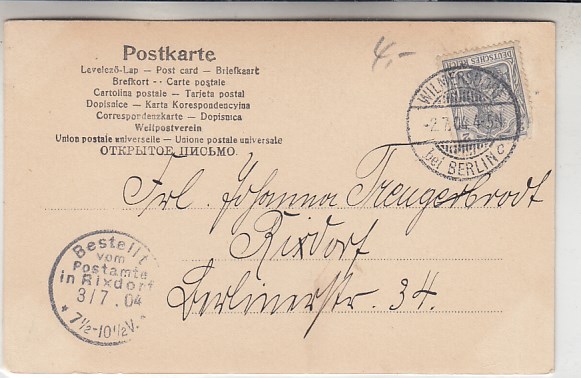 Postkarte
Levelező-Lap — Post card — Briefkaart
Brefkort -- Carte postale
Cartolina postale — Tarjeta postal
Dopisalce — Karta Korespondencyina
Correspondenzkarte — Dopisnica
Weltpostverein
Union postale universelle — Unione postale universale
ОТКРЫТОЕ ПИСЬМО.
4,-
DEUTSCHES REICH
WILMERSDORF
-2.7.04. 4-5N.
bei BERLIN c
Frl. Johanna Trengerbrodt
Rixdorf
Berlinerstr. 34.
Bestellt
vom
Postamte
in Rixdorf
3/7. 04
* 7½-10½V. *